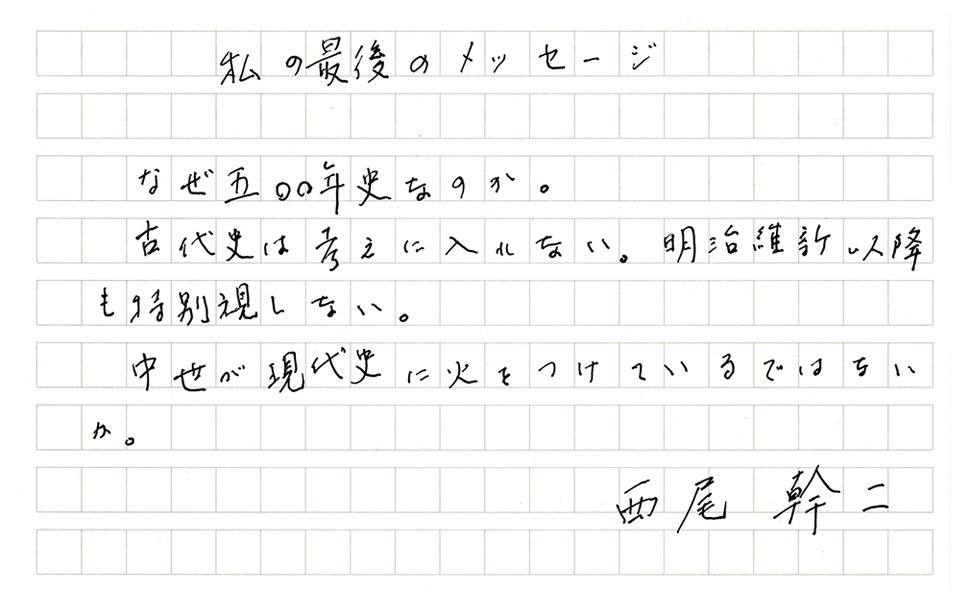 私の最後のメッセージ
なぜ五〇〇年史なのか。
古代史は考えに入れない。明治維新以降
も特別視しない。
中世が現代史に火をつけているではない
か。
西尾幹二